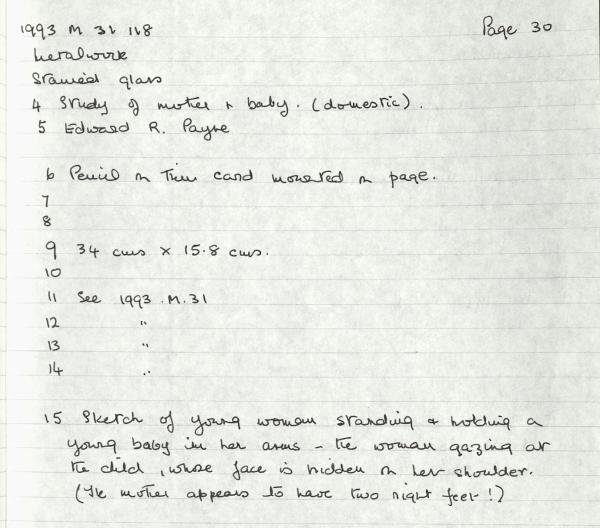 1993 M 31 168 Page 30
Metalwork
Stained glass
4 Study of mother & baby. (domestic).
5 Edward R. Payne
6 Pencil on thin card mounted on page.
7
8
9 34 cms × 15.8 cms.
10
11 See 1993.M.31
12 "
13 "
14 "
15 Sketch of young woman standing & holding a
young baby in her arms - the woman gazing at
the child, whose face is hidden on her shoulder.
(The mother appears to have two right feet!)